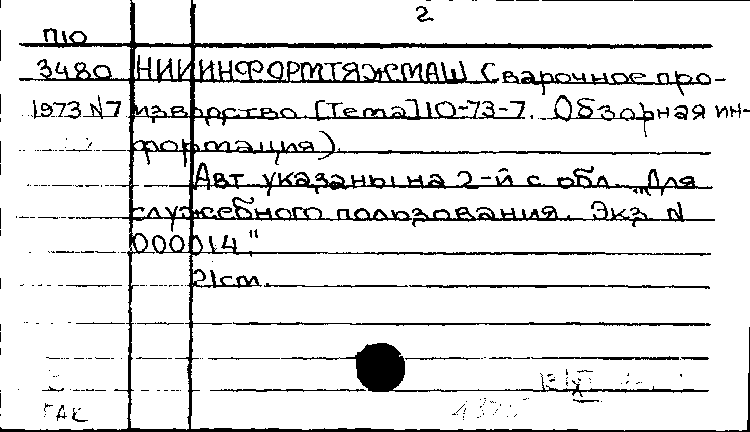 2
П10
3480 НИИИНФОРМТЯЖМАШ Сварочное про-
1973 N7 изводство. [Тема] 10-73-7. Обзорная ин-
формация).
Авт указаны на 2-й с обл. „Для
служебного пользования. Экз N
000014."
21 см.
ГАК